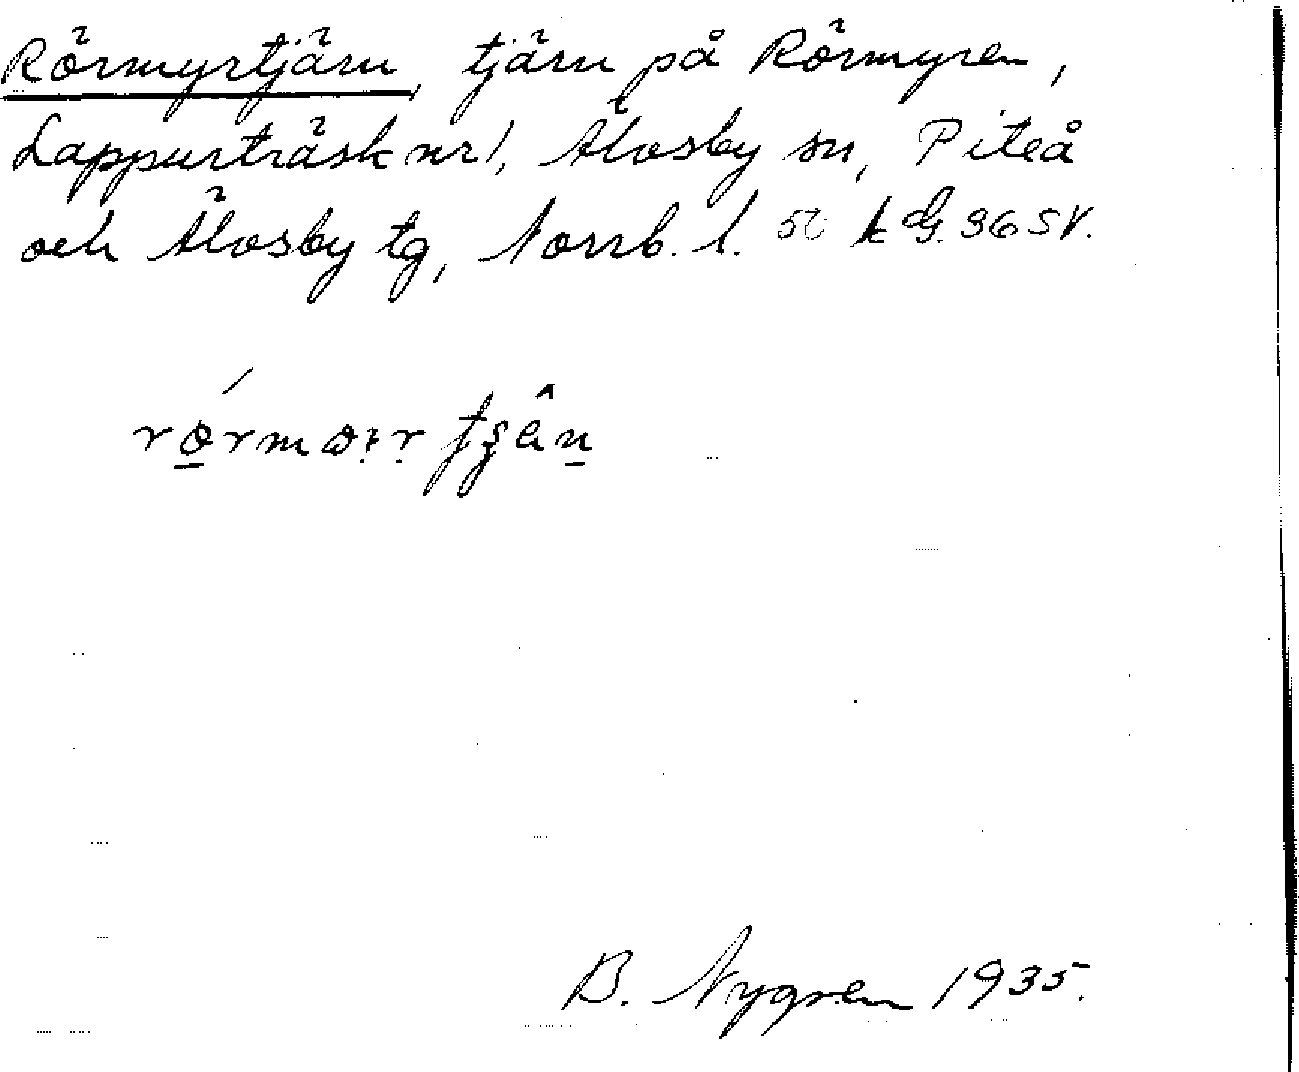 Rörmyrtjärn, tjärn på Rörmyren,
Lappträsk nr 1, Älvsby sn, Piteå
och Älvsby tg, Norrb. l. k G. 36 SV.
B. Nygren 1935.